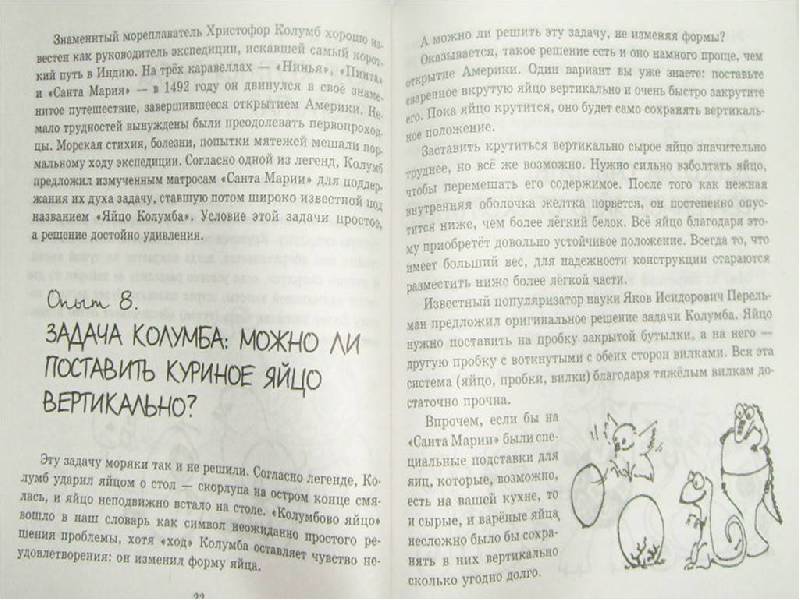 Знаменитый мореплаватель Христофор Колумб хорошо из-
вестен как руководитель экспедиции, искавшей самый корот-
кий путь в Индию. На трёх каравеллах — «Нинья», «Пинта»
и «Санта Мария» — в 1492 году он двинулся в своё знаме-
нитое путешествие, завершившееся открытием Америки. Не-
мало трудностей вынуждены были преодолевать первопроход-
цы. Морская стихия, болезни, попытки мятежей мешали нор-
мальному ходу экспедиции. Согласно одной из легенд, Колумб
предложил измученным матросам «Санта Марии» для поддер-
жания их духа задачу, ставшую потом широко известной под
названием «Яйцо Колумба». Условие этой задачи простое,
а решение достойно удивления.
Опыт 8.
ЗАДАЧА КОЛУМБА: МОЖНО ЛИ
ПОСТАВИТЬ КУРИНОЕ ЯЙЦО
ВЕРТИКАЛЬНО?
Эту задачу моряки так и не решили. Согласно легенде, Ко-
лумб ударил яйцом о стол — скорлупа на остром конце смя-
лась, и яйцо неподвижно встало на столе. «Колумбово яйцо»
вошло в наш словарь как символ неожиданно простого ре-
шения проблемы, хотя «ход» Колумба оставляет чувство не-
удовлетворения: он изменил форму яйца.
22
А можно ли решить эту задачу, не изменяя формы?
Оказывается, такое решение есть и оно намного проще, чем
открытие Америки. Один вариант вы уже знаете: поставьте
сваренное вкрутую яйцо вертикально и очень быстро закрутите
его. Пока яйцо крутится, оно будет само сохранять вертикаль-
ное положение.
Заставить крутиться вертикально сырое яйцо значительно
труднее, но всё же возможно. Нужно сильно взболтать яйцо,
чтобы перемешать его содержимое. После того как нежная
внутренняя оболочка желтка порвётся, он постепенно опус-
тится ниже, чем более лёгкий белок. Всё яйцо благодаря это-
му приобретёт довольно устойчивое положение. Всегда то, что
имеет больший вес, для надежности конструкции стараются
разместить ниже более лёгкой части.
Известный популяризатор науки Яков Исидорович Перель-
ман предложил оригинальное решение задачи Колумба. Яйцо
нужно поставить на пробку закрытой бутылки, а на него —
другую пробку с воткнутыми с обеих сторон вилками. Вся эта
система (яйцо, пробки, вилки) благодаря тяжёлым вилкам до-
статочно прочна.
Впрочем, если бы на
«Санта Марии» были спе-
циальные подставки для
яиц, которые, возможно,
есть на вашей кухне, то
и сырые, и варёные яйца
несложно было бы сохра-
нять в них вертикально
сколько угодно долго.